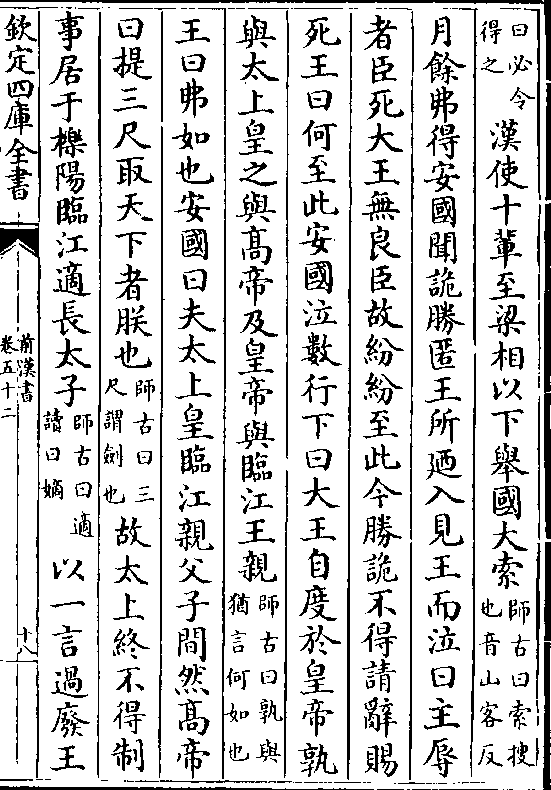 曰必令得之漢使十輩至梁相以下舉國大索師古曰索搜也音山客反
月餘弗得安國聞詭勝匿王所廼入見王而泣曰主辱
者臣死大王無良臣故紛紛至此今勝詭不得請辭賜
死王曰何至此安國泣數行下曰大王自度於皇帝孰
與太上皇之與髙帝及皇帝與臨江王親師古曰孰與猶言何如也
王曰弗如也安國曰夫太上皇臨江親父子間然髙帝
曰提三尺取天下者朕也師古曰三尺謂劍也故太上終不得制
事居于櫟陽臨江適長太子師古曰適讀曰嫡以一言過廢王
欽定四庫全書
前漢書
卷五十二
十八